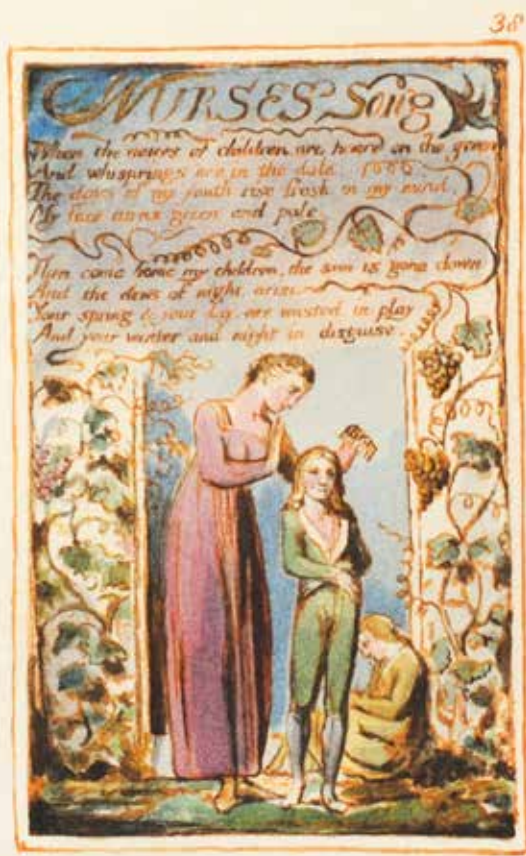 38
NURSES Song
When the voices of children, are heard on the green
And whisprings are in the dale:
The days of my youth rise fresh in my mind,
My face turns green and pale.
Then come home my children, the sun is gone down
And the dews of night arise
Your spring & your day, are wasted in play
And your winter and night in disguise.